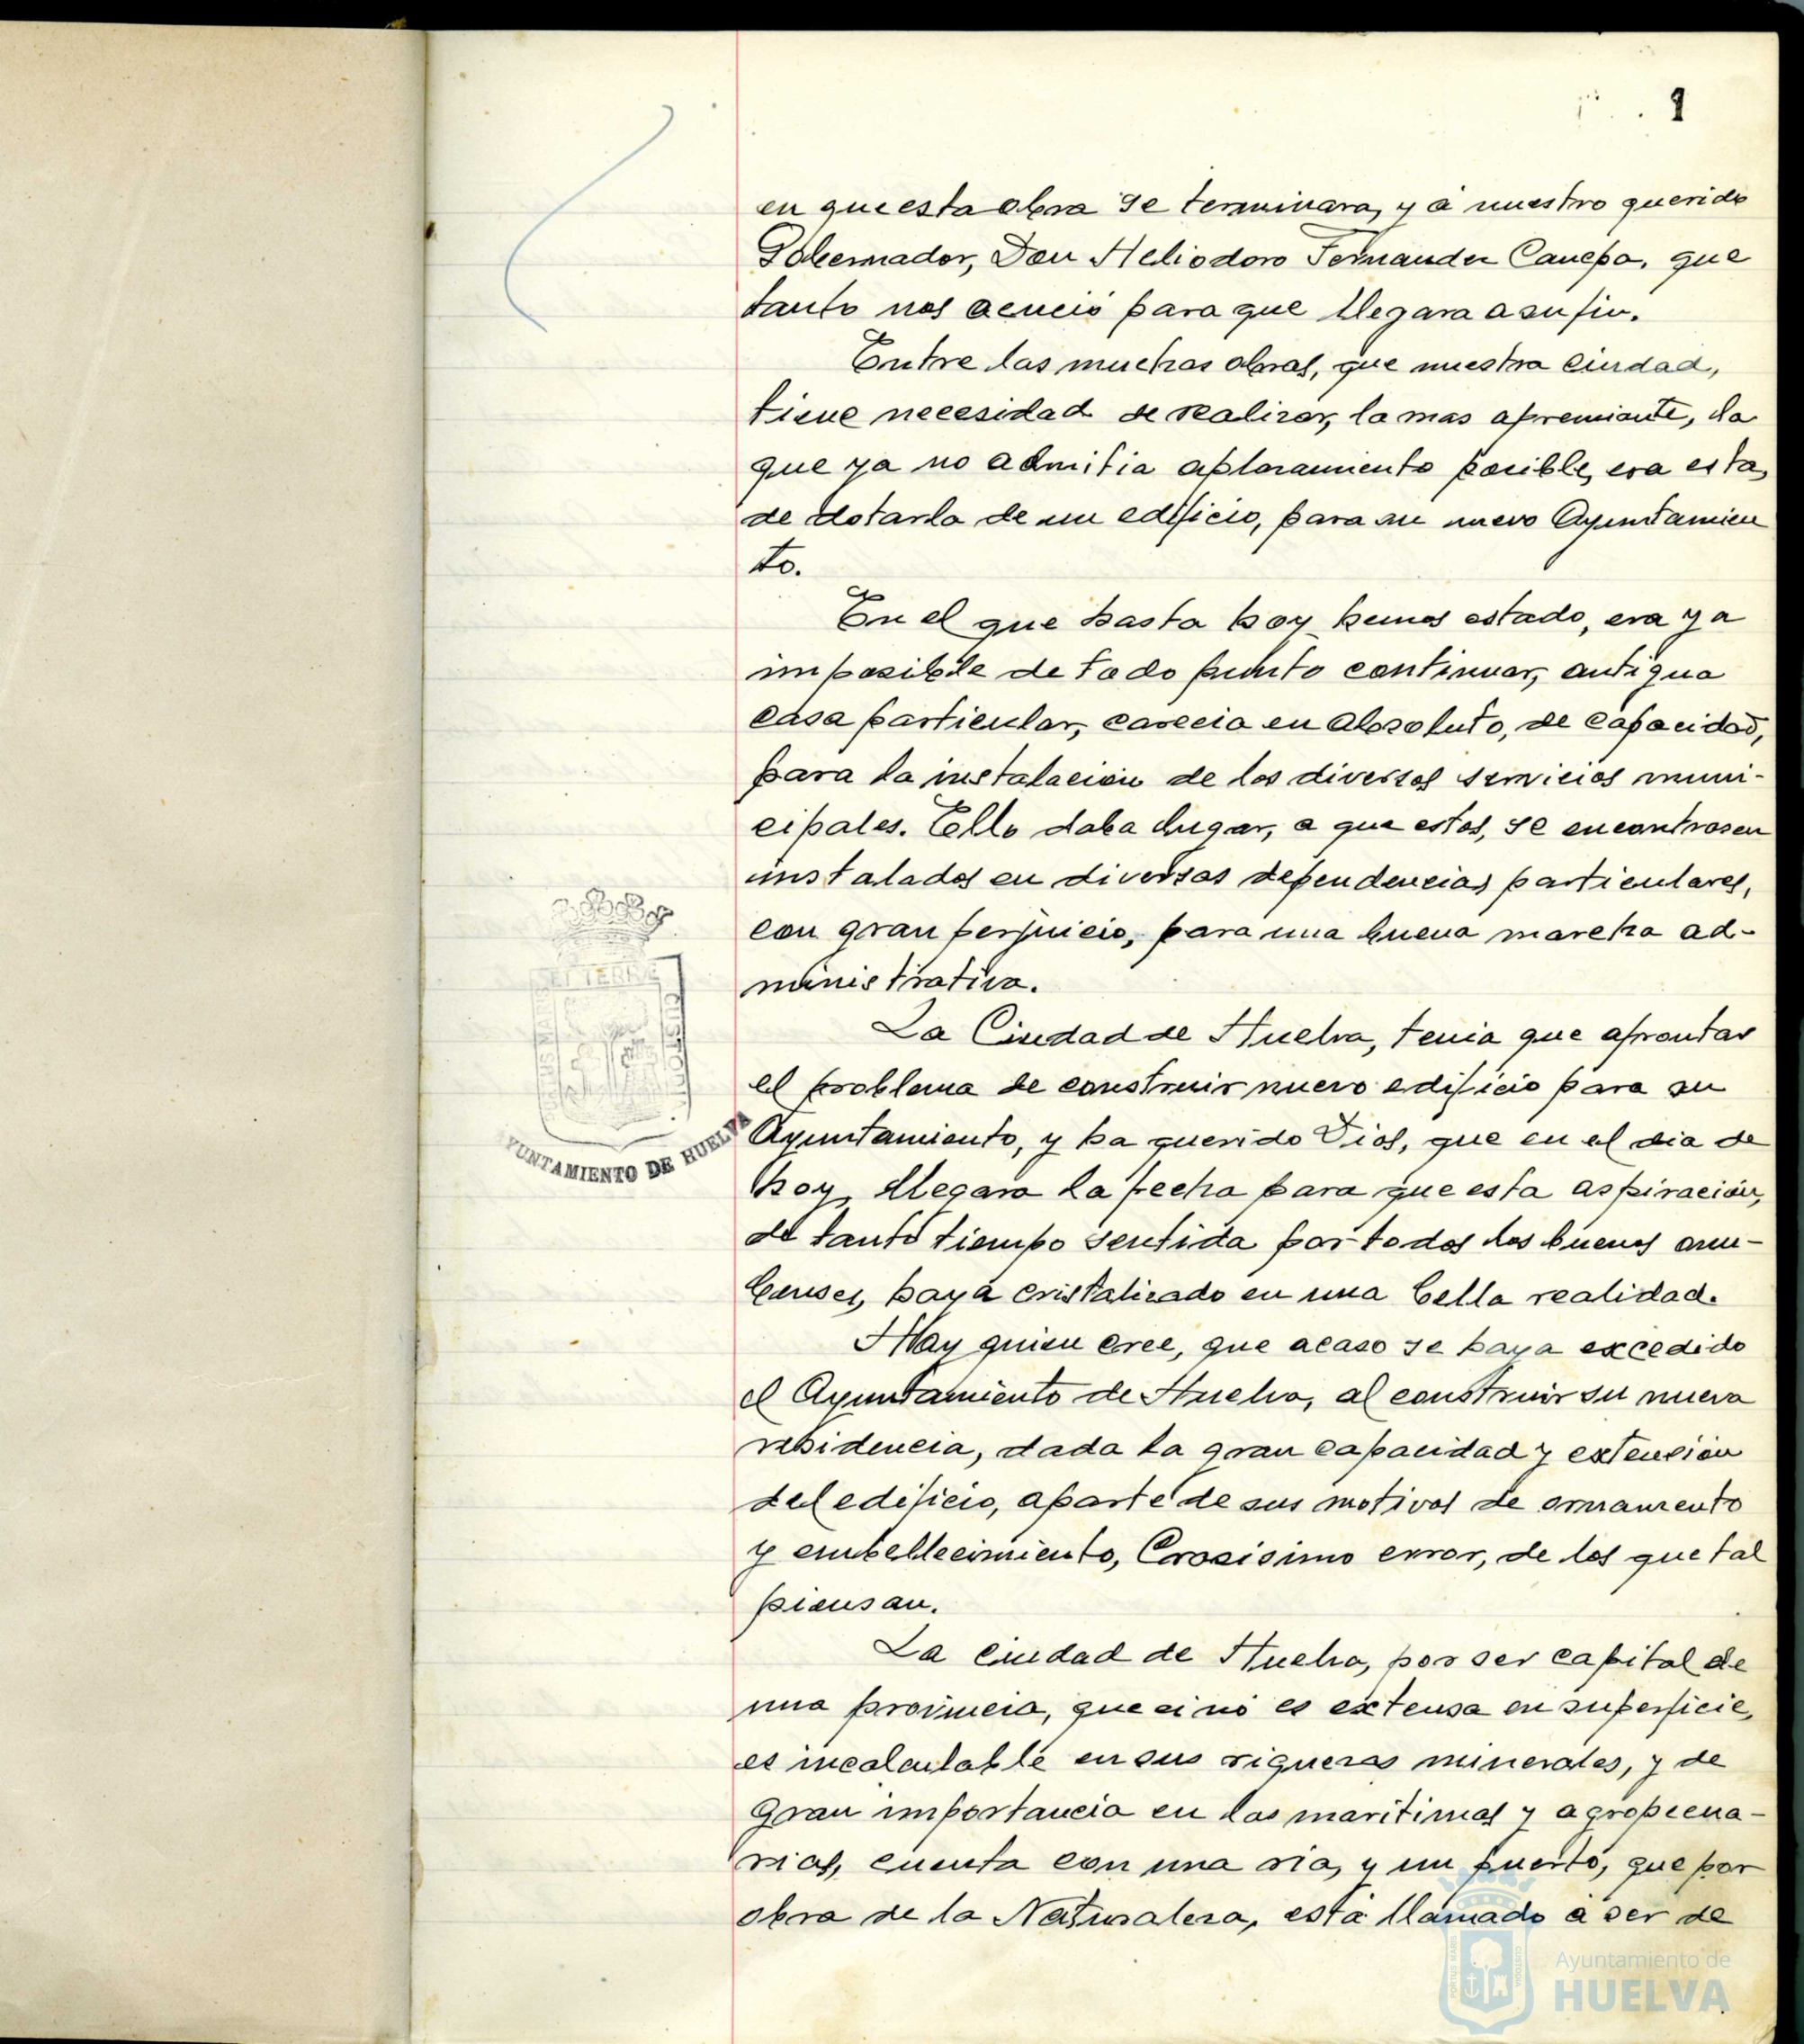 1
en que esta obra se terminara, y á nuestro querido
Gobernador, Don Heliodoro Fernandez Canepa, que
tanto nos acució para que llegara a su fin.
Entre las muchas obras, que nuestra ciudad,
tiene necesidad de realizar, la mas apremiante, la
que ya no admitia aplazamiento posible, era esta,
de dotarla de un edificio, para su nuevo Ayuntamien
to.
En el que hasta hoy hemos estado, era ya
imposible de todo punto continuar, antigua
casa particular, carecia en absoluto, de capacidad,
para la instalación de los diversos servicios muni-
cipales. Ello daba lugar, a que estos, se encontrasen
instalados en diversas dependencias particulares,
con gran perjuicio, para una buena marcha ad-
ministrativa.
La Ciudad de Huelva, tenia que afrontar
el problema de construir nuevo edificio para su
Ayuntamiento, y ha querido Dios, que en el dia de
hoy, llegara la fecha para que esta aspiración,
de tanto tiempo sentida por todos los buenos onu-
benses, haya cristalizado en una bella realidad.
Hay quien cree, que acaso se haya excedido
el Ayuntamiento de Huelva, al construir su nueva
residencia, dada la gran capacidad y extensión
del edificio, aparte de sus motivos de ornamento
y embellecimiento, Crasisimo error, de los que tal
piensan.
La ciudad de Huelva, por ser capital de
una provincia, que si nó es extensa en superficie,
es incalculable en sus riquezas minerales, y de
gran importancia en las maritimas y agropecua-
rias, cuenta con una ria, y un puerto, que por
obra de la Naturaleza, está llamado á ser de
ET TERRE
YUNTAMIENTO DE HUELVA
Ayuntamiento de
HUELVA